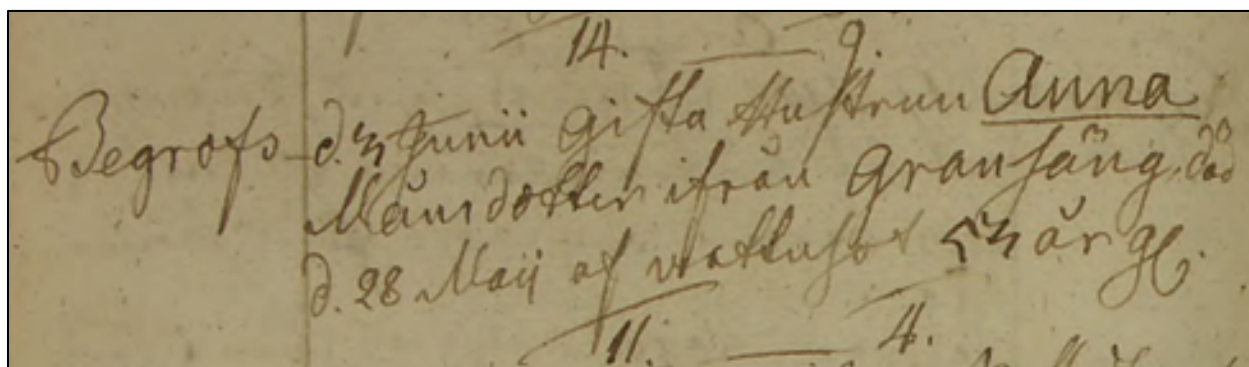 14. 9.
Begrofs d. 3 Junii Gifta Hustrun Anna
Månsdotter ifrån Gransäng, död
d. 28 Maij af wattusot 53 år gl.
11. 4.